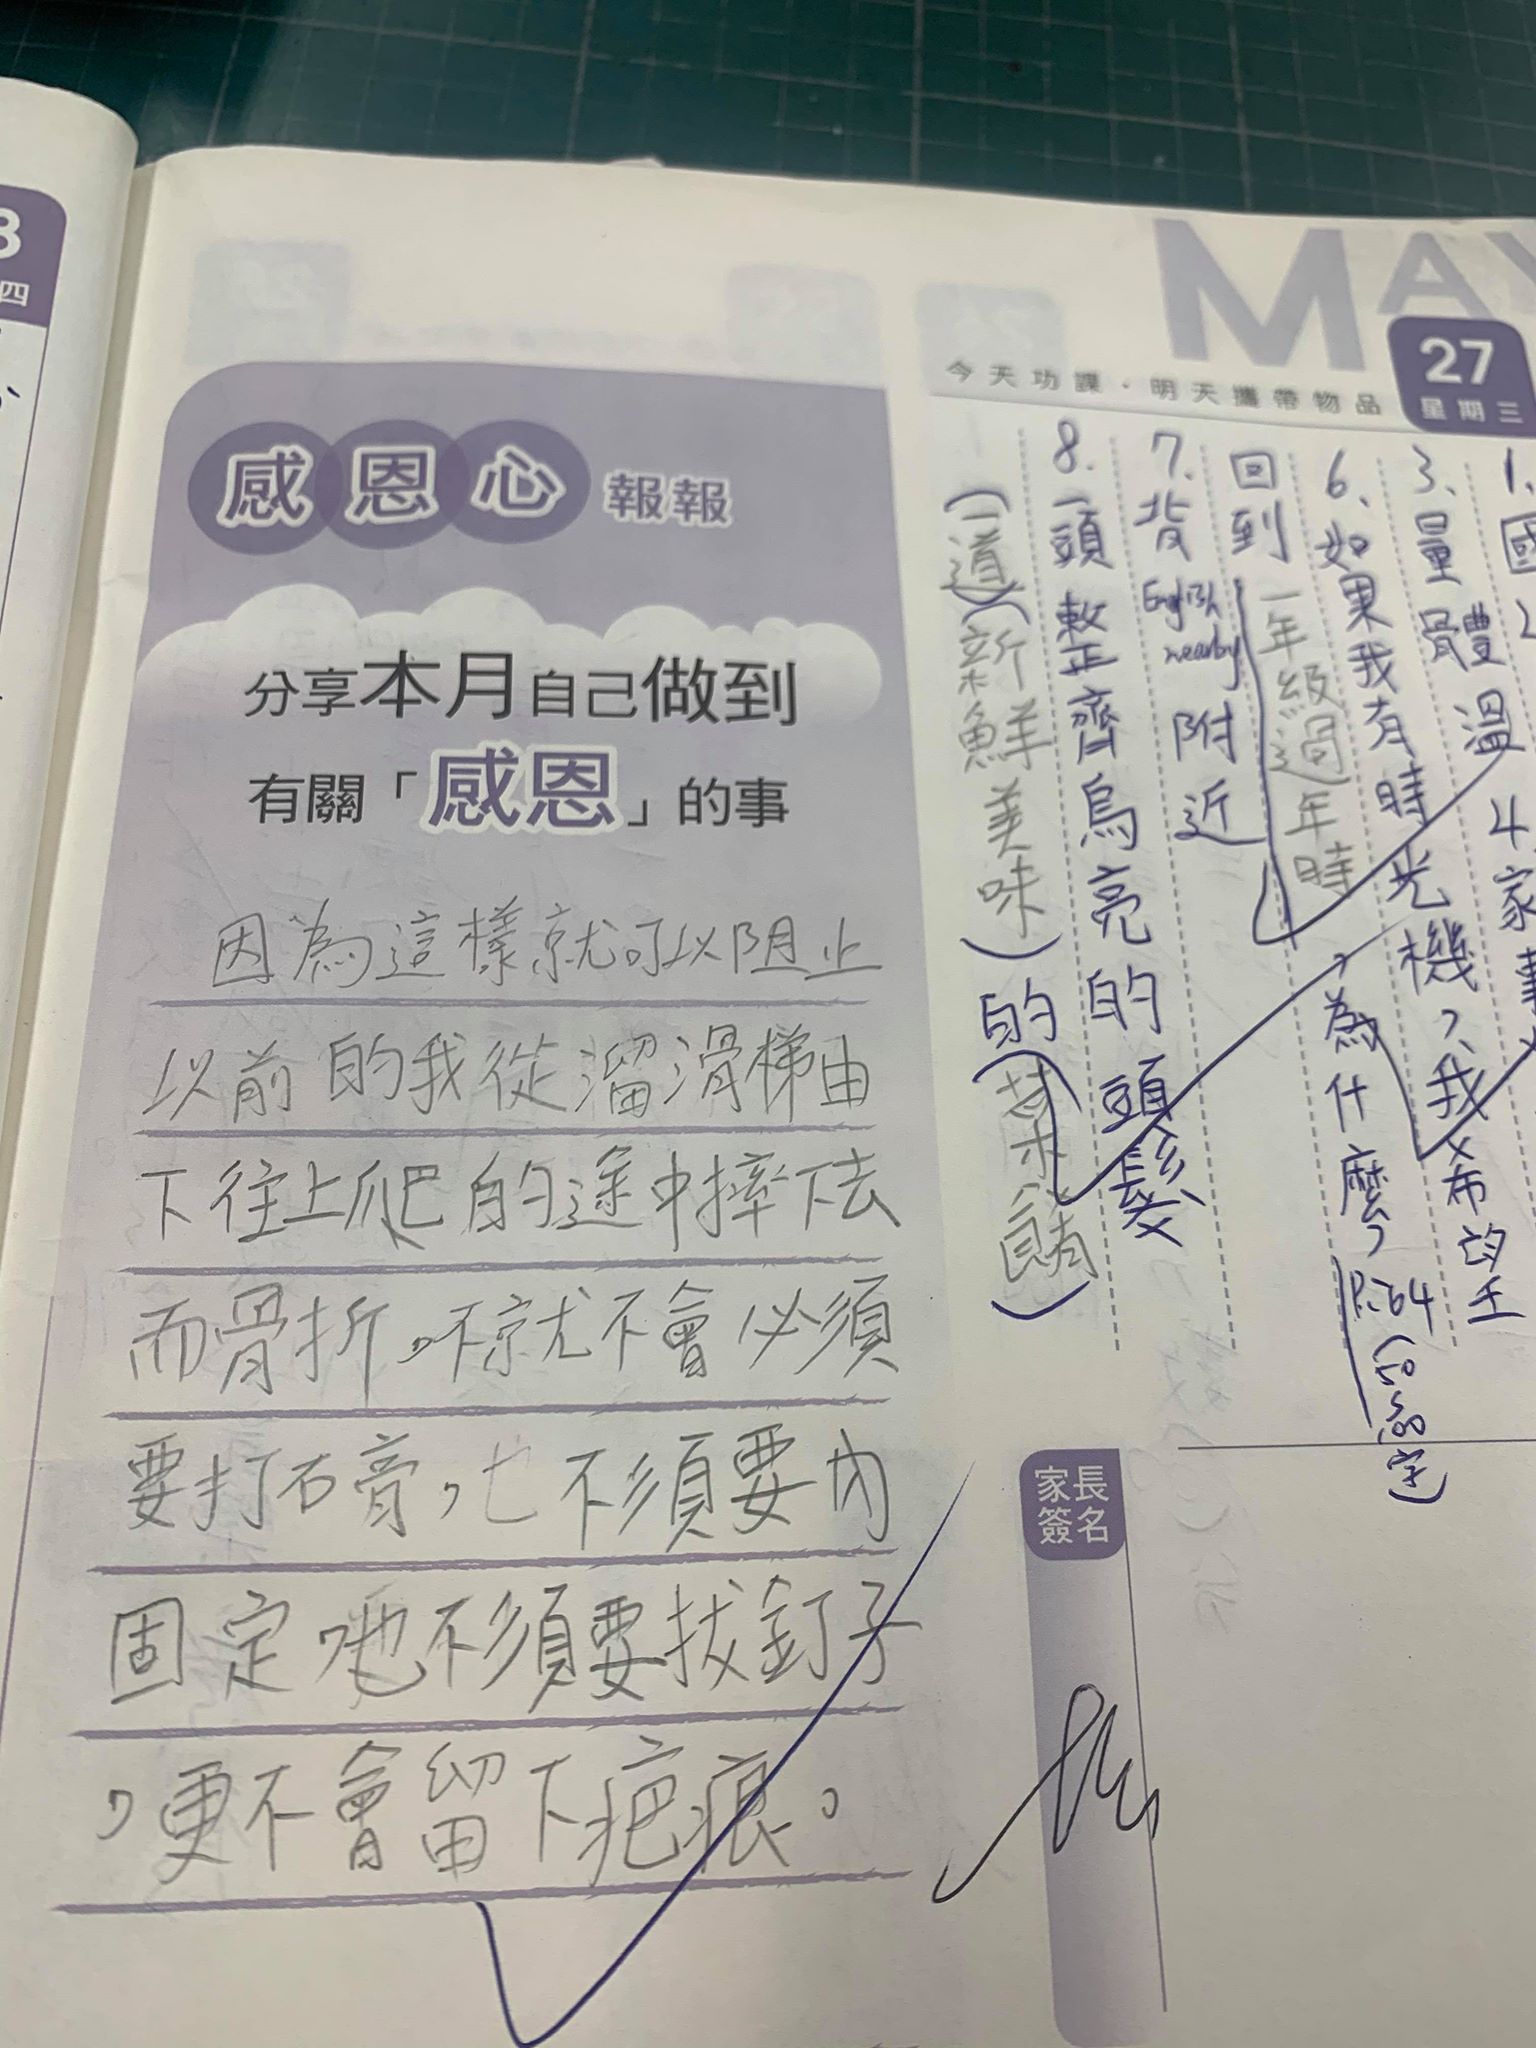 8
四
感恩心報報
分享本月自己做到
有關「感恩」的事
因為這樣就可以阻止
以前的我從溜滑梯由
下往上爬的途中摔下去
而骨折,吥就不會必須
要打石膏,也不須要內
固定,吔不須要拔釘子
,更不會留下疤痕。
MAY
今天功課.明天攜帶物品
27
星期三
1.國
4.家事
3.量體溫
6.如果我有時光機,我希望
回到一年級過年時,為什麼,P.64(50~100字)
7.背English nearby附近
8.一頭整齊烏亮的頭髮
(一道)(新鮮美味)的(菜餚)
家長
簽名